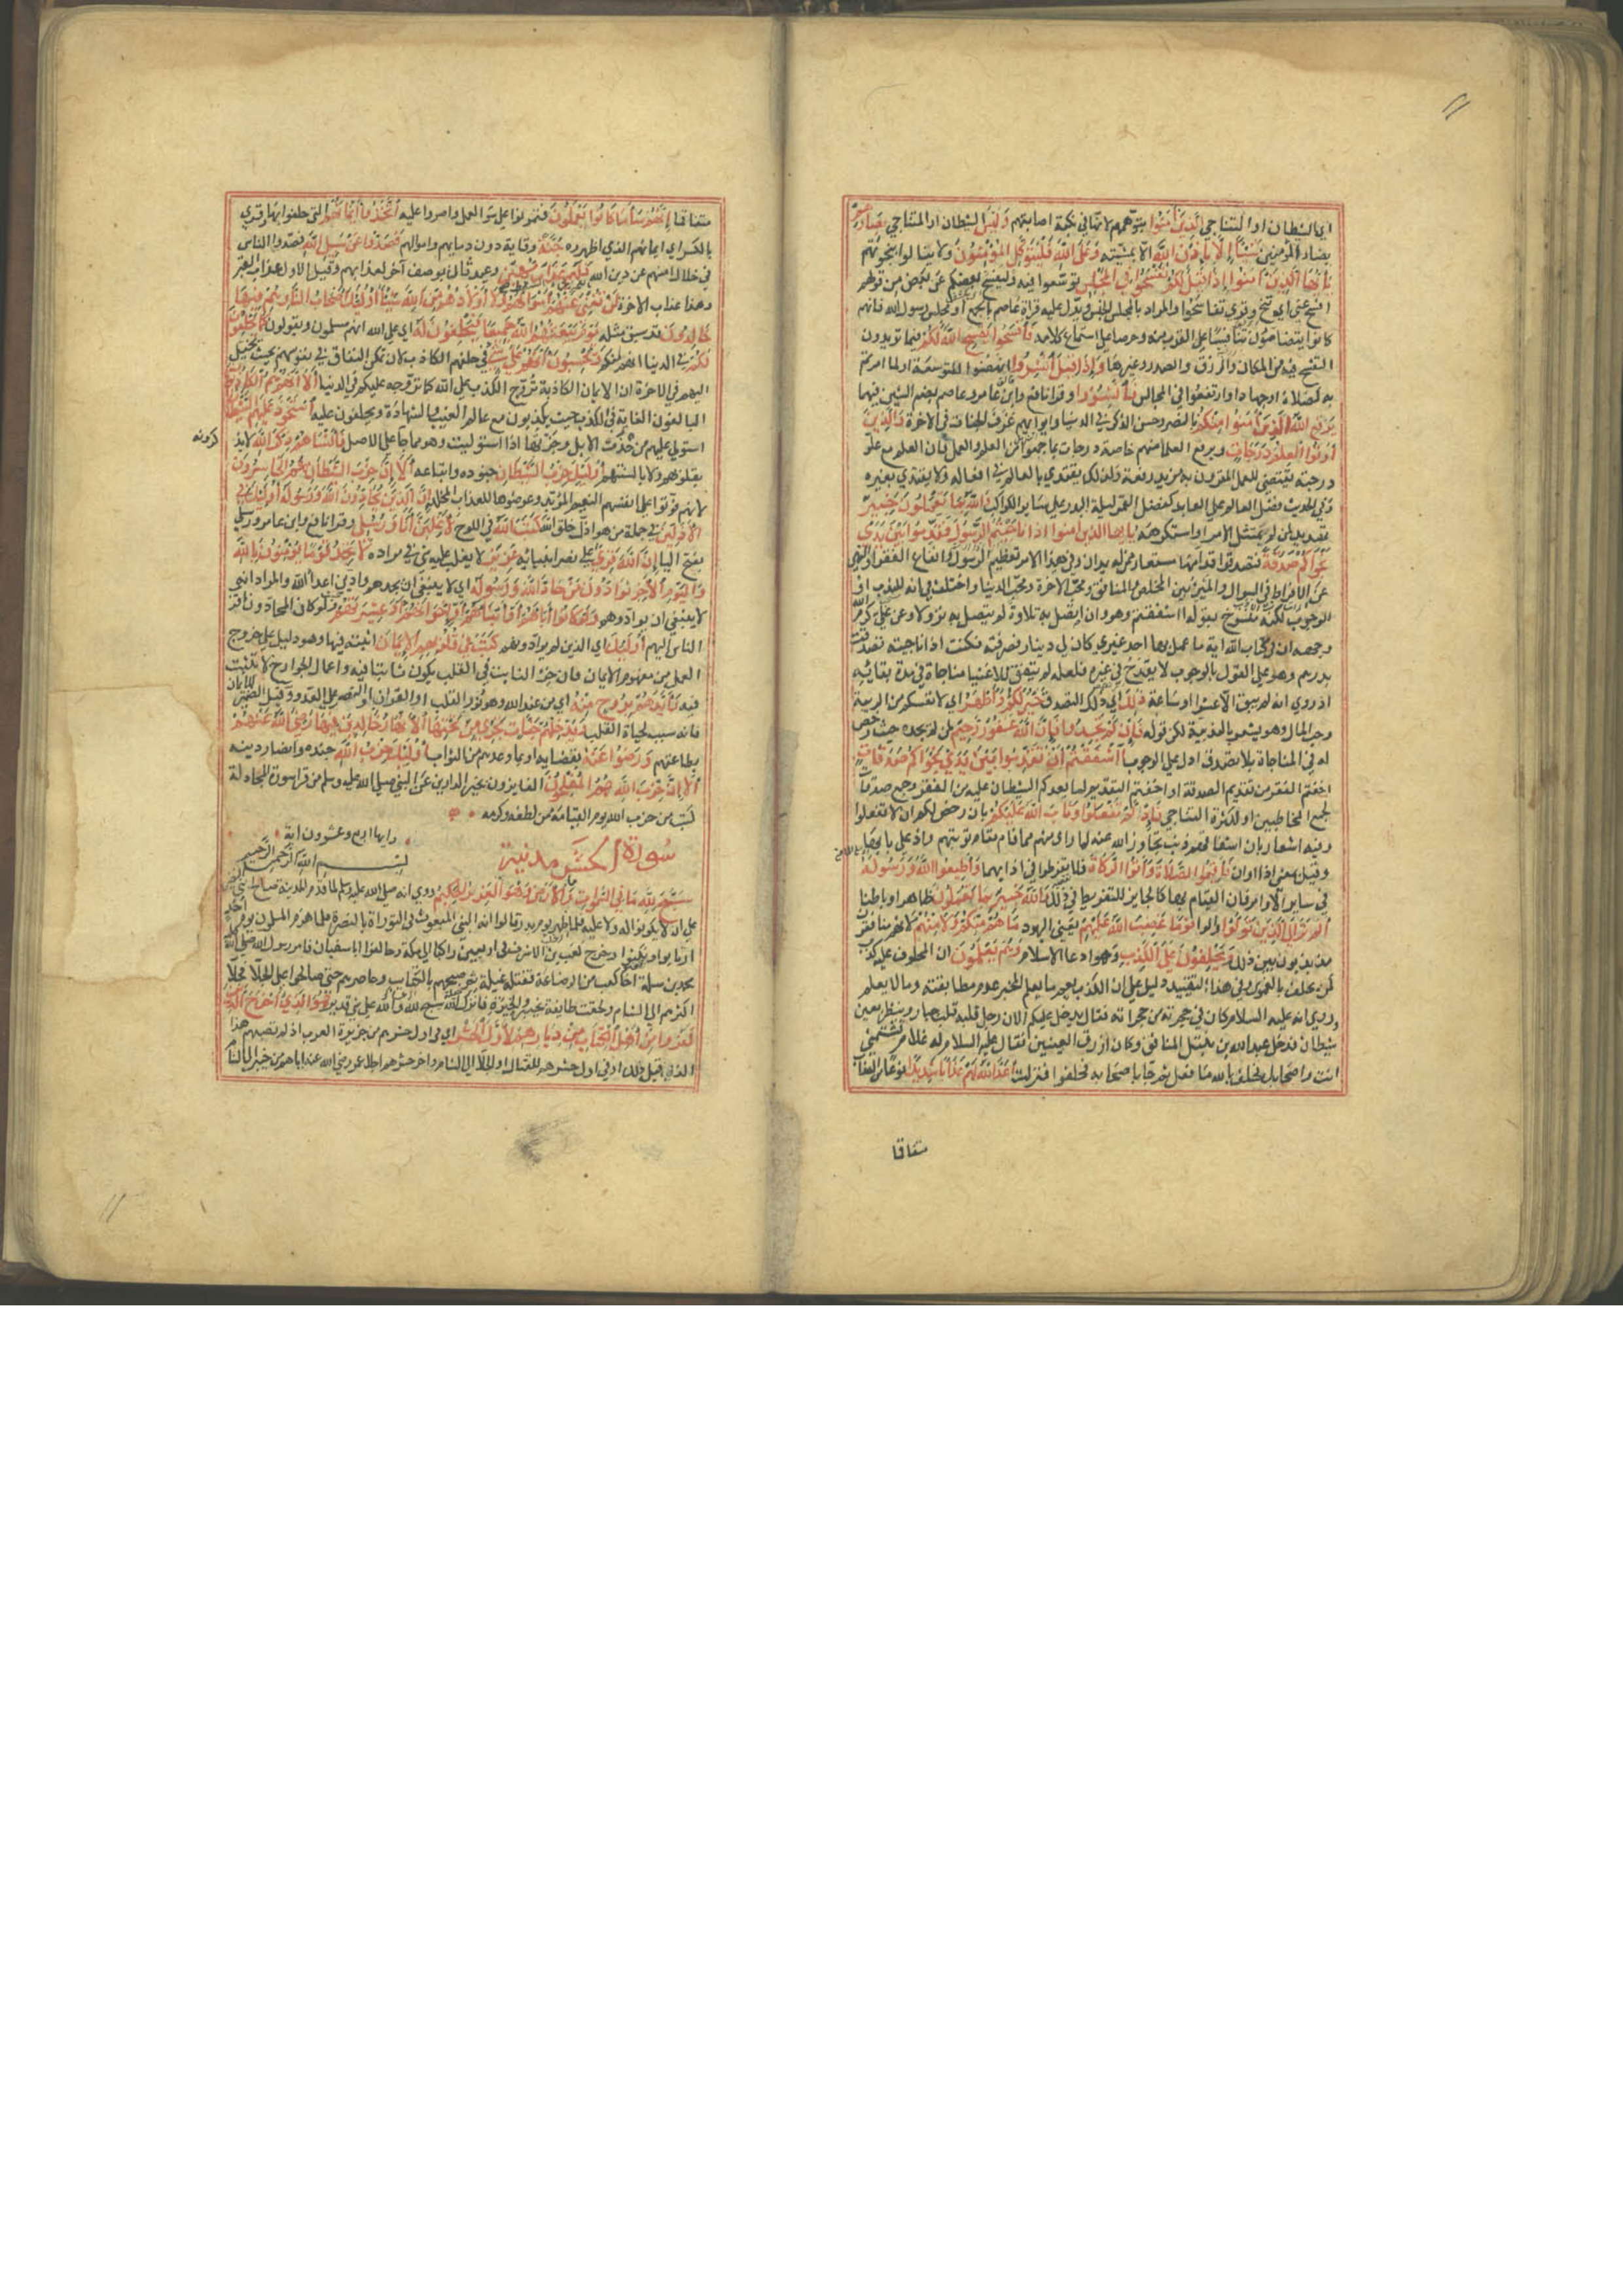 الشيطان او التناجي الذين آمنوا بتوهمهم لانها في نكبة اصابتهم وليس الشيطان او المتناجي بضارهم
بضار المؤمنين شيئا الا باذن الله الا بمشيته وعلى الله فليتوكل المؤمنون ولا يبالوا بنجوٰهم
يا ايها الذين آمنوا اذا قيل لكم تفسحوا في المجلس توسعوا فيه وليفسح بعضكم عن بعض من قولهم
افسح عني اي تنح وقري تفاسحوا والمراد بالمجلس الجنس ويدل عليه قراة عاصم بالجمع او مجلس رسول الله فانهم
كانوا يتضامون تنافسا على القرب منه وحرصا على استماع كلامه فافسحوا يفسح الله لكم فيما تريدون
التفسح فيه من المكان والرزق والصدر وغيرها واذا قيل انشزوا انهضوا للتوسعة او لما امرتم
به لصلاة او جهاد او ارتفعوا في المجالس فانشزوا وقرا نافع وابن عامر وعاصم بضم الشين فيهما
يرفع الله الذين آمنوا منكم بالنصر وحسن الذكر في الدنيا وايوائهم غرف الجنان في الاخرة والذين
اوتوا العلم درجات ويرفع العلما منهم خاصة درجات بما جمعوا من العلم والعمل فان العلم مع علو
درجته يقتضي للعمل المقرون به مزيد رفعة ولذلك يقتدي بالعالم في افعاله ولا يقتدي بغيره
وفي الحديث فضل العالم على العابد كفضل القمر ليلة البدر على ساير الكواكب والله بما تعملون خبير
تهديد لمن لم يمتثل الامر او استكرهه يا ايها الذين امنوا اذا ناجيتم الرسول فقدموا بين يدي
نجواكم صدقة فتصدقوا قدامها مستعار ممن له يدان وفي هذا الامر تعظيم الرسول وانفاع الفقرا والنهي
عن الافراط في السوال والميز بين المخلص والمنافق ومحب الاخرة ومحب الدنيا واختلف في انه للندب او
للوجوب لكنه منسوخ بقوله اشفقتم وهو وان اتصل به تلاوة لم يتصل به نزولا وعن علي كرم الله
وجهه ان في كتاب الله اية ما عمل بها احد غيري كان لي دينار فصرفته فكنت اذا ناجيته تصدقت
بدرهم وهو على القول بالوجوب لا يقدح في غيره فلعله لم يتفق للاغنيا مناجاة في مدة بقائه
اذ روي انه لم يبق الا عشرا او ساعة ذلك اي ذلك التصدق خير لكم واطهر اي لانفسكم من الريبة
وحب المال وهو يشعر بالندبية لكن قوله فان لم تجدوا فان الله غفور رحيم لمن لم يجده حيث رخص
له في المناجاة بلا تصدق ادل على الوجوب أشفقتم أن تقدموا بين يدي نجواكم صدقات
اخفتم الفقر من تقديم الصدقة او اخفتم التقديم لما يعدكم الشيطان عليه من الفقر وجمع صدقات
لجمع المخاطبين او لكثرة التناجي فاذ لم تفعلوا وتاب الله عليكم بان رخص لكم ان لا تفعلوا
وفيه اشعار بان اشفاقهم ذنب تجاوز الله عنه لما راى منهم مما قام مقام توبتهم واذ على بابها
وقيل بمعنى اذا او ان فاقيموا الصلاة وآتوا الزكاة فلا تفرطوا في ادايهما واطيعوا الله ورسوله
في ساير الاوامر فان القيام بها كالجابر للتفريط في ذلك والله خبير بما تعملون ظاهرا وباطنا
الم تر الى الذين تولوا والوا قوما غضب الله عليهم يعني اليهود ما هم منكم ولا منهم لانهم منافقون
مذبذبون بين ذلك ويحلفون على الكذب وهو ادعا الاسلام وهم يعلمون ان المحلوف عليه كذب
كمن يحلف بالغموس وفي هذا التقييد دليل على ان الكذب يعم ما يعلم المخبر عدم مطابقته وما لا يعلم
وروي انه عليه السلام كان في حجرة من حجراته فقال يدخل عليكم الان رجل قلبه قلب جبار وينظر بعين
شيطان فدخل عبد الله بن نبتل المنافق وكان ازرق العينين فقال عليه السلام له علام تشتمني
انت واصحابك فحلف بالله ما فعل ثم جا باصحابه فحلفوا فنزلت اعد الله لهم عذابا شديدا نوعا من العذاب
متفاقا
متفاقما إنهم سا ما كانوا يعملون فتمرنوا على سو العمل واصروا عليه اتخذوا ايمانهم التي حلفوا بها وقري
بالكسر اي ايمانهم الذي اظهروه جنة وقاية دون دمايهم واموالهم فصدوا عن سبيل الله فصدوا الناس
في خلال امنهم عن دين الله فلهم عذاب مهين وعيد ثان بوصف آخر لعذابهم وقيل الاول عذاب القبر
وهذا عذاب الاخرة لن تغني عنهم اموالهم ولا اولادهم من الله شيئا اولئك اصحاب النار هم فيها
خالدون قد سبق مثله يوم يبعثهم الله جميعا فيحلفون له اي على الله انهم مسلمون ويقولون كما يحلفون
لكم في الدنيا انهم لمنكم ويحسبون انهم على شي في حلفهم الكاذب لان تمكن النفاق في نفوسهم بحيث يخيل
اليهم في الاخرة ان الايمان الكاذبة تروج الكذب على الله كما تروجه عليكم في الدنيا ألا إنهم هم الكاذبون
البالغون الغاية في الكذب حيث يكذبون مع عالم الغيب والشهادة ويحلفون عليه استحوذ عليهم الشيطان
استولى عليهم من حذت الابل وحزتها اذا استوليت وهو مما جا على الاصل فانساهم ذكر الله لا يذكرونه
بقلوبهم ولا بالسنتهم اولئك حزب الشيطان جنوده واتباعه ألا إن حزب الشيطان هم الخاسرون
لانهم فوتوا على انفسهم النعيم المؤبد وعرضوها للعذاب المخلد إن الذين يحادون الله ورسوله اولئك في
الاذلين في جملة من هو اذل خلق الله كتب الله في اللوح لأغلبن أنا ورسلي وقرا نافع وابن عامر ورسلي
بفتح اليا إن الله قوي على نصر انبيائه عزيز لا يغلب عليه شي في مراده لا تجد قوما يؤمنون بالله
واليوم الآخر يوادون من حاد الله ورسوله اي لا ينبغي ان تجدهم وادين اعدا الله والمراد انه
لا ينبغي ان يوادوهم ولو كانوا أباهم او ابناهم او اخوانهم او عشيرتهم ولو كان المحادون اقرب
الناس اليهم اولئك اي الذين لم يوادوهم كتب في قلوبهم الإيمان اثبته فيها وهو دليل على خروج
العمل من مفهوم الايمان فان جزء الثابت في القلب يكون ثابتا فيه واعمال الجوارح لا تثبت
فيه وأيدهم بروح منه اي من عند الله وهو نور القلب او القرآن او النصر على العدو وقيل الضمير للايمان
فانه سبب لحياة القلب ويدخلهم جنات تجري من تحتها الانهار خالدين فيها رضي الله عنهم
بطاعتهم ورضوا عنه بقضايه او بما وعدهم من الثواب أولئك حزب الله جنده وانصار دينه
ألا إن حزب الله هم المفلحون الفايزون بخير الدارين عن النبي صلى الله عليه وسلم من قرا سورة المجادلة
كتب من حزب الله يوم القيامة من لطفه وكرمه
سورة الحشر مدنية وايها اربع وعشرون اية
بسم الله الرحمن الرحيم
سبح لله ما في السموات وما في الارض وهو العزيز الحكيم روي انه صلى الله عليه وسلم لما قدم المدينة صالح بني النضير
على ان لا يكونوا له ولا عليه فلما ظهر يوم بدر قالوا انه النبي المنعوت في التوراة بالنصرة فلما هزم المسلمون يوم احد
ارتابوا ونكثوا وخرج كعب بن الاشرف في اربعين راكبا الى مكة وحالفوا ابا سفيان فامر رسول الله صلى الله
محمد بن مسلمة اخا كعب من الرضاعة فقتله غيلة ثم صبحهم بالكتايب وحاصرهم حتى صالحوا على الجلا فجلا
اكثرهم الى الشام ولحقت طايفة بخيبر والحيرة فانزل الله سبح لله الى قوله والله على كل شي قدير هو الذي أخرج الذين
كفروا من أهل الكتاب من ديارهم لأول الحشر اي في اول حشرهم من جزيرة العرب اذ لم يصبهم هذا
الذل قبل ذلك او في اول حشرهم للقتال او الجلا الى الشام واخر حشرهم اجلا عمر رضي الله عنه اياهم من خيبر الى الشام